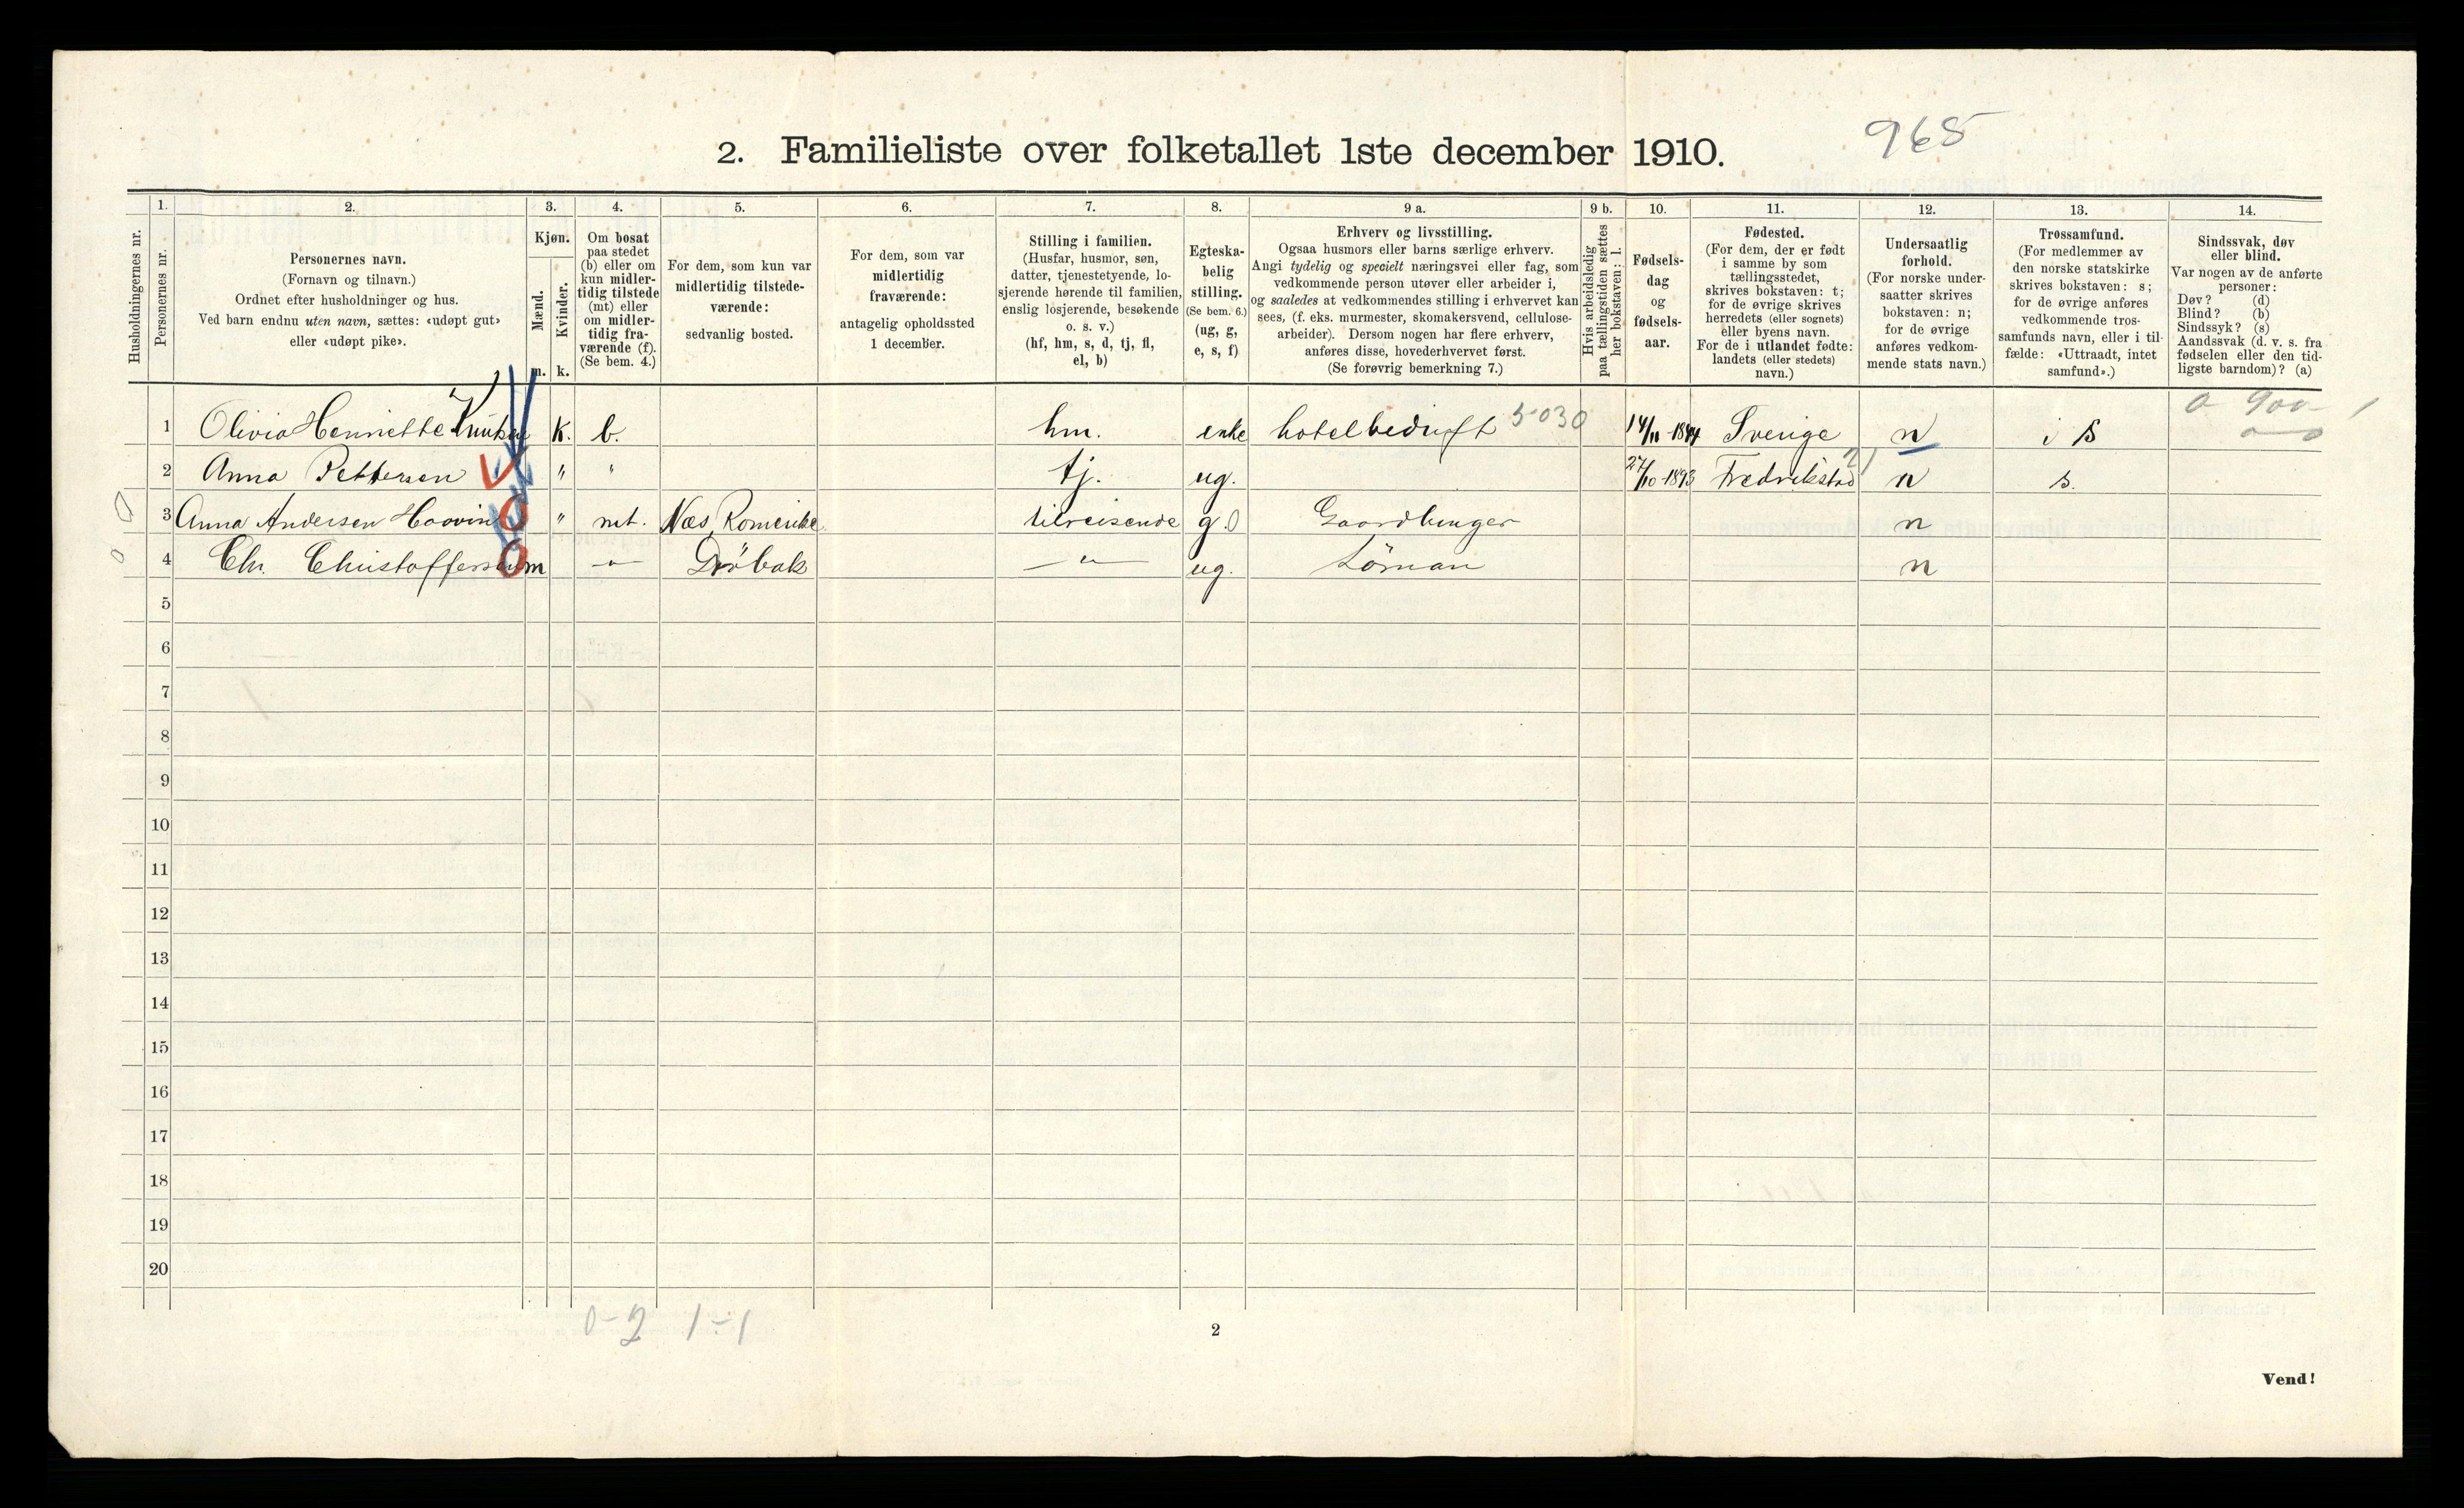 2. Familieliste over folketallet 1ste december 1910.
965
Husholdningernes nr.
1.
Personernes nr.
2.
Personernes navn.
(Fornavn og tilnavn.)
Ordnet efter husholdninger og hus.
Ved barn endnu uten navn, sættes: «udøpt gut»
eller «udøpt pike».
3.
Kjøn.
Mænd.
Kvinder.
m. k.
4.
Om bosat
paa stedet
(b) eller om
kun midler-
tidig tilstede
(mt) eller
om midler-
tidig fra-
værende (f).
(Se bem. 4.)
5.
For dem, som kun var
midlertidig tilstede-
værende:
sedvanlig bosted.
6.
For dem, som var
midlertidig
fraværende:
antagelig opholdssted
1 december.
7.
Stilling i familien.
(Husfar, husmor, søn,
datter, tjenestetyende, lo-
sjerende hørende til familien,
enslig losjerende, besøkende
o. s. v.)
(hf, hm, s, d, tj, fl,
el, b)
8.
Egteska-
belig
stilling.
(Se bem. 6.)
(ug, g,
e, s, f)
9 a.
Erhverv og livsstilling.
Ogsaa husmors eller barns særlige erhverv.
Angi tydelig og specielt næringsvei eller fag, som
vedkommende person utøver eller arbeider i,
og saaledes at vedkommendes stilling i erhvervet kan
sees, (f. eks. murmester, skomakersvend, cellulose-
arbeider). Dersom nogen har flere erhverv,
anføres disse, hovederhvervet først.
(Se forøvrig bemerkning 7.)
9 b.
Hvis arbeidsledig
paa tællingstiden sættes
her bokstaven: l.
10.
Fødsels-
dag
og
fødsels-
aar.
11.
Fødested.
(For dem, der er født
i samme by som
tællingsstedet,
skrives bokstaven: t;
for de øvrige skrives
herredets (eller sognets)
eller byens navn.
For de i utlandet fødte:
landets (eller stedets)
navn.)
12.
Undersaatlig
forhold.
(For norske under-
saatter skrives
bokstaven: n;
for de øvrige
anføres vedkom-
mende stats navn.)
13.
Trossamfund.
(For medlemmer av
den norske statskirke
skrives bokstaven: s;
for de øvrige anføres
vedkommende tros-
samfunds navn, eller i til-
fælde: «Uttraadt, intet
samfund».)
14.
Sindssvak, døv
eller blind.
Var nogen av de anførte
personer:
Døv? (d)
Blind? (b)
Sindssyk? (s)
Aandssvak (d. v. s. fra
fødselen eller den tid-
ligste barndom)? (a)
0 900 1
1 Olivia Henriette Knutsen K. b. hm. enke hotelbedrift 5030 14/11-1844 Sverige n i s
2 Anna Pettersen " " tj. ug. 27/10-1893 Fredrikstad 21 n s.
3 Anna Andersen Haavin " mt. Næs, Romerike tilreisende g. 0 Gaardbruger n
4 Chr. Christoffersen m — " — Drøbak — " — ug. Löman n
5
6
7
8
9
10
11
12
13
14
15
16
17
18
19
20
0-2 1-1
2
Vend!